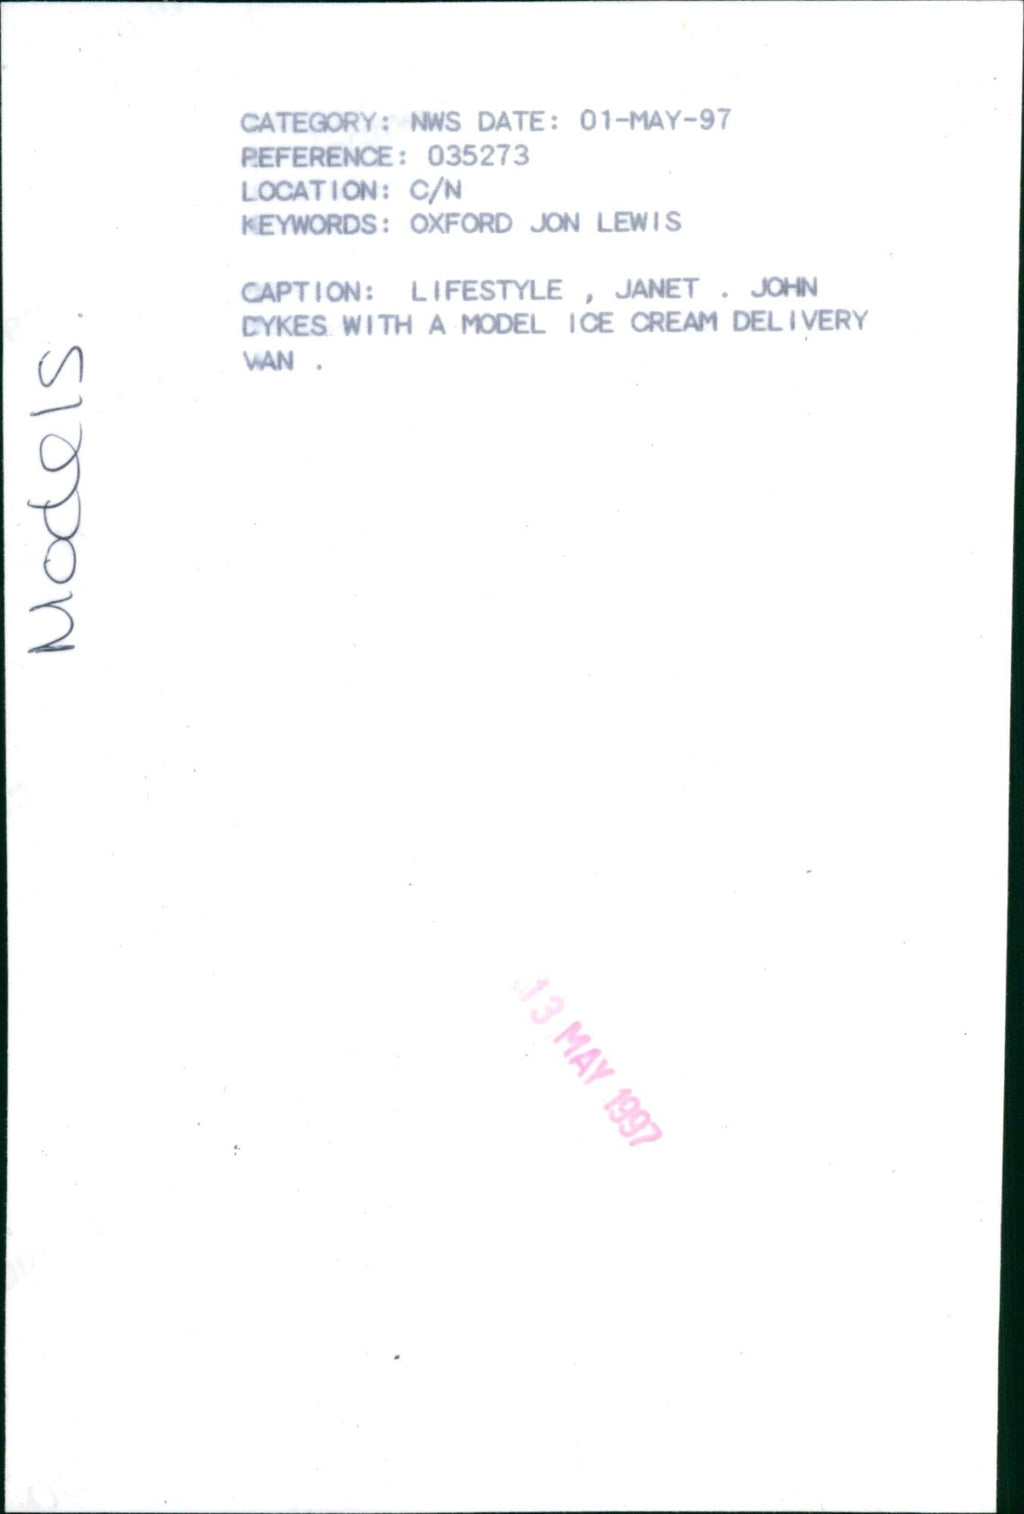 CATEGORY: NWS DATE: 01-MAY-97
REFERENCE: 035273
LOCATION: C/N
KEYWORDS: OXFORD JON LEWIS
CAPTION: LIFESTYLE , JANET . JOHN
DYKES WITH A MODEL ICE CREAM DELIVERY
VAN .
Models.
13 MAY 1997